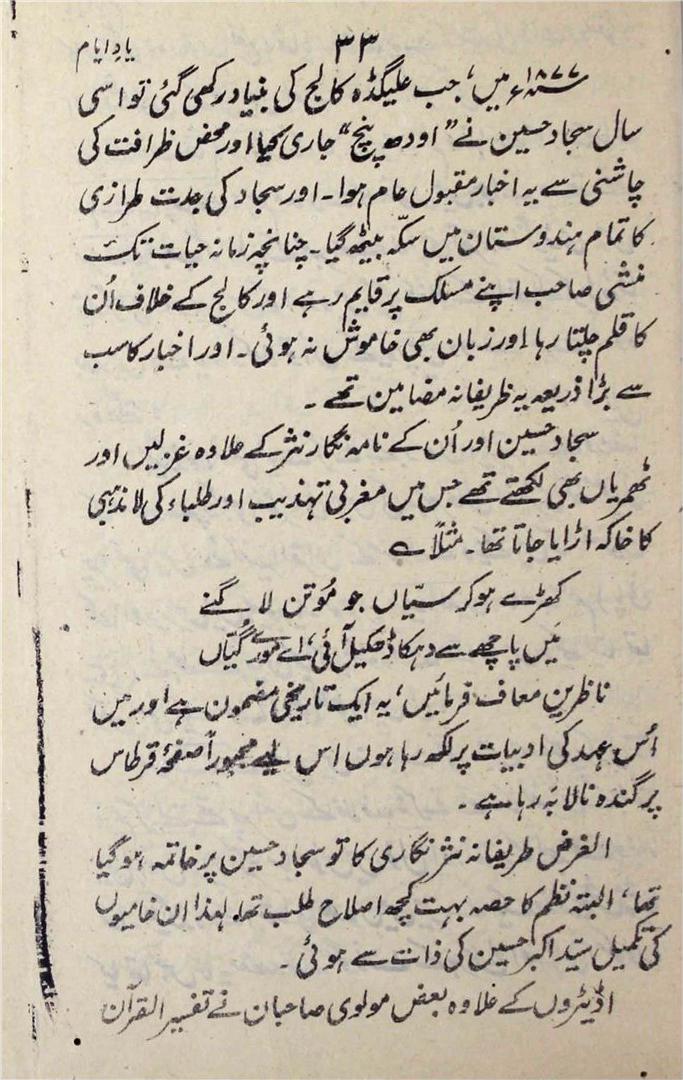 یادِ ایام
۳۳
۱۸۷۷ء میں، جب علیگڈہ کالج کی بنیاد رکھی گئی تو اسی
سال سجاد حسین نے ”اودھ پنچ“ جاری کیا اور محض ظرافت کی
چاشنی سے یہ اخبار مقبول عام ہوا۔ اور سجاد کی جدت طرازی
کا تمام ہندوستان میں سکّہ بیٹھ گیا۔ چنانچہ زمانہ حیات تک
منشی صاحب اپنے مسلک پر قایم رہے اور کالج کے خلاف اُن
کا قلم چلتا رہا اور زبان بھی خاموش نہ ہوئی۔ اور اخبار کا سب
سے بڑا ذریعہ یہ ظریفانہ مضامین تھے۔
سجاد حسین اور اُن کے نامہ نگار نثر کے علاوہ غزلیں اور
ٹھمریاں بھی لکھتے تھے جس میں مغربی تہذیب اور طلباء کی لا مذہبی
کا خاکہ اڑایا جاتا تھا۔ مثلاً ے
کھڑے ہو کر سیّاں جو مُوتن لاگنے
میں پاچھے سے دہکا ڈھکیل آئی، اے مورے گیّاں
ناظرین معاف فرمائیں، یہ ایک تاریخی مضمون ہے اور میں
اُس عہد کی ادبیات پر لکھ رہا ہوں اس لیے مجبوراً صفحۂ قرطاس
پر گندہ نالا بہ رہا ہے۔
الغرض ظریفانہ نثر نگاری کا تو سجاد حسین پر خاتمہ ہو گیا
تھا، البتہ نظم کا حصہ بہت کچھ اصلاح طلب تھا۔ لہذا ان خامیوں
کی تکمیل سیّد اکبر حسین کی ذات سے ہوئی۔
اڈیٹروں کے علاوہ بعض مولوی صاحبان نے تفسیر القرآن